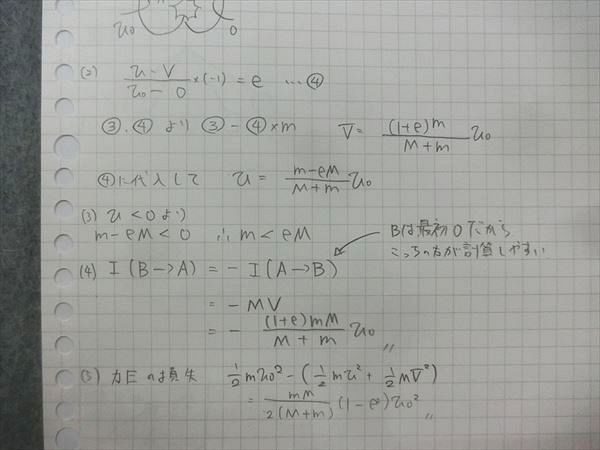 u₀ 0
(2) (u - V)/(u₀ - 0) × (-1) = e …④
③,④より ③-④×m V = (1+e)m/(M+m) u₀
④に代入して u = (m-eM)/(M+m) u₀
(3) u < 0 より
m-eM < 0 ∴ m < eM
Bは最初0だから
こっちの方が計算しやすい
(4) I (B→A) = - I (A→B)
= - MV
= - (1+e)mM/(M+m) u₀ 〃
(5) 力Eの損失 ½mu₀² - (½mu² + ½MV²)
= mM/2(M+m) (1-e²)u₀² 〃